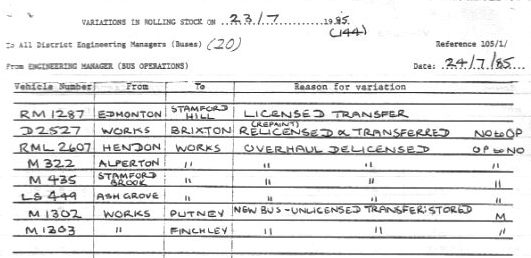 VARIATIONS IN ROLLING STOCK ON 23/7 1985.
(144)
To All District Engineering Managers (Buses) (20) Reference 105/1/
From ENGINEERING MANAGER (BUS OPERATIONS) Date: 24/7/85.
Vehicle Number From To Reason for variation
RM 1287 EDMONTON STAMFORD HILL LICENSED TRANSFER
D2527 WORKS BRIXTON (REPAINT) RELICENSED & TRANSFERRED NO to OP
RML 2607 HENDON WORKS OVERHAUL DELICENSED OP to NO
M 322 ALPERTON " " " "
M 435 STAMFORD BROOK " " " "
LS 449 ASH GROVE " " " "
M 1302 WORKS PUTNEY NEW BUS - UNLICENSED TRANSFER: STORED M
M 1303 " FINCHLEY " " " "